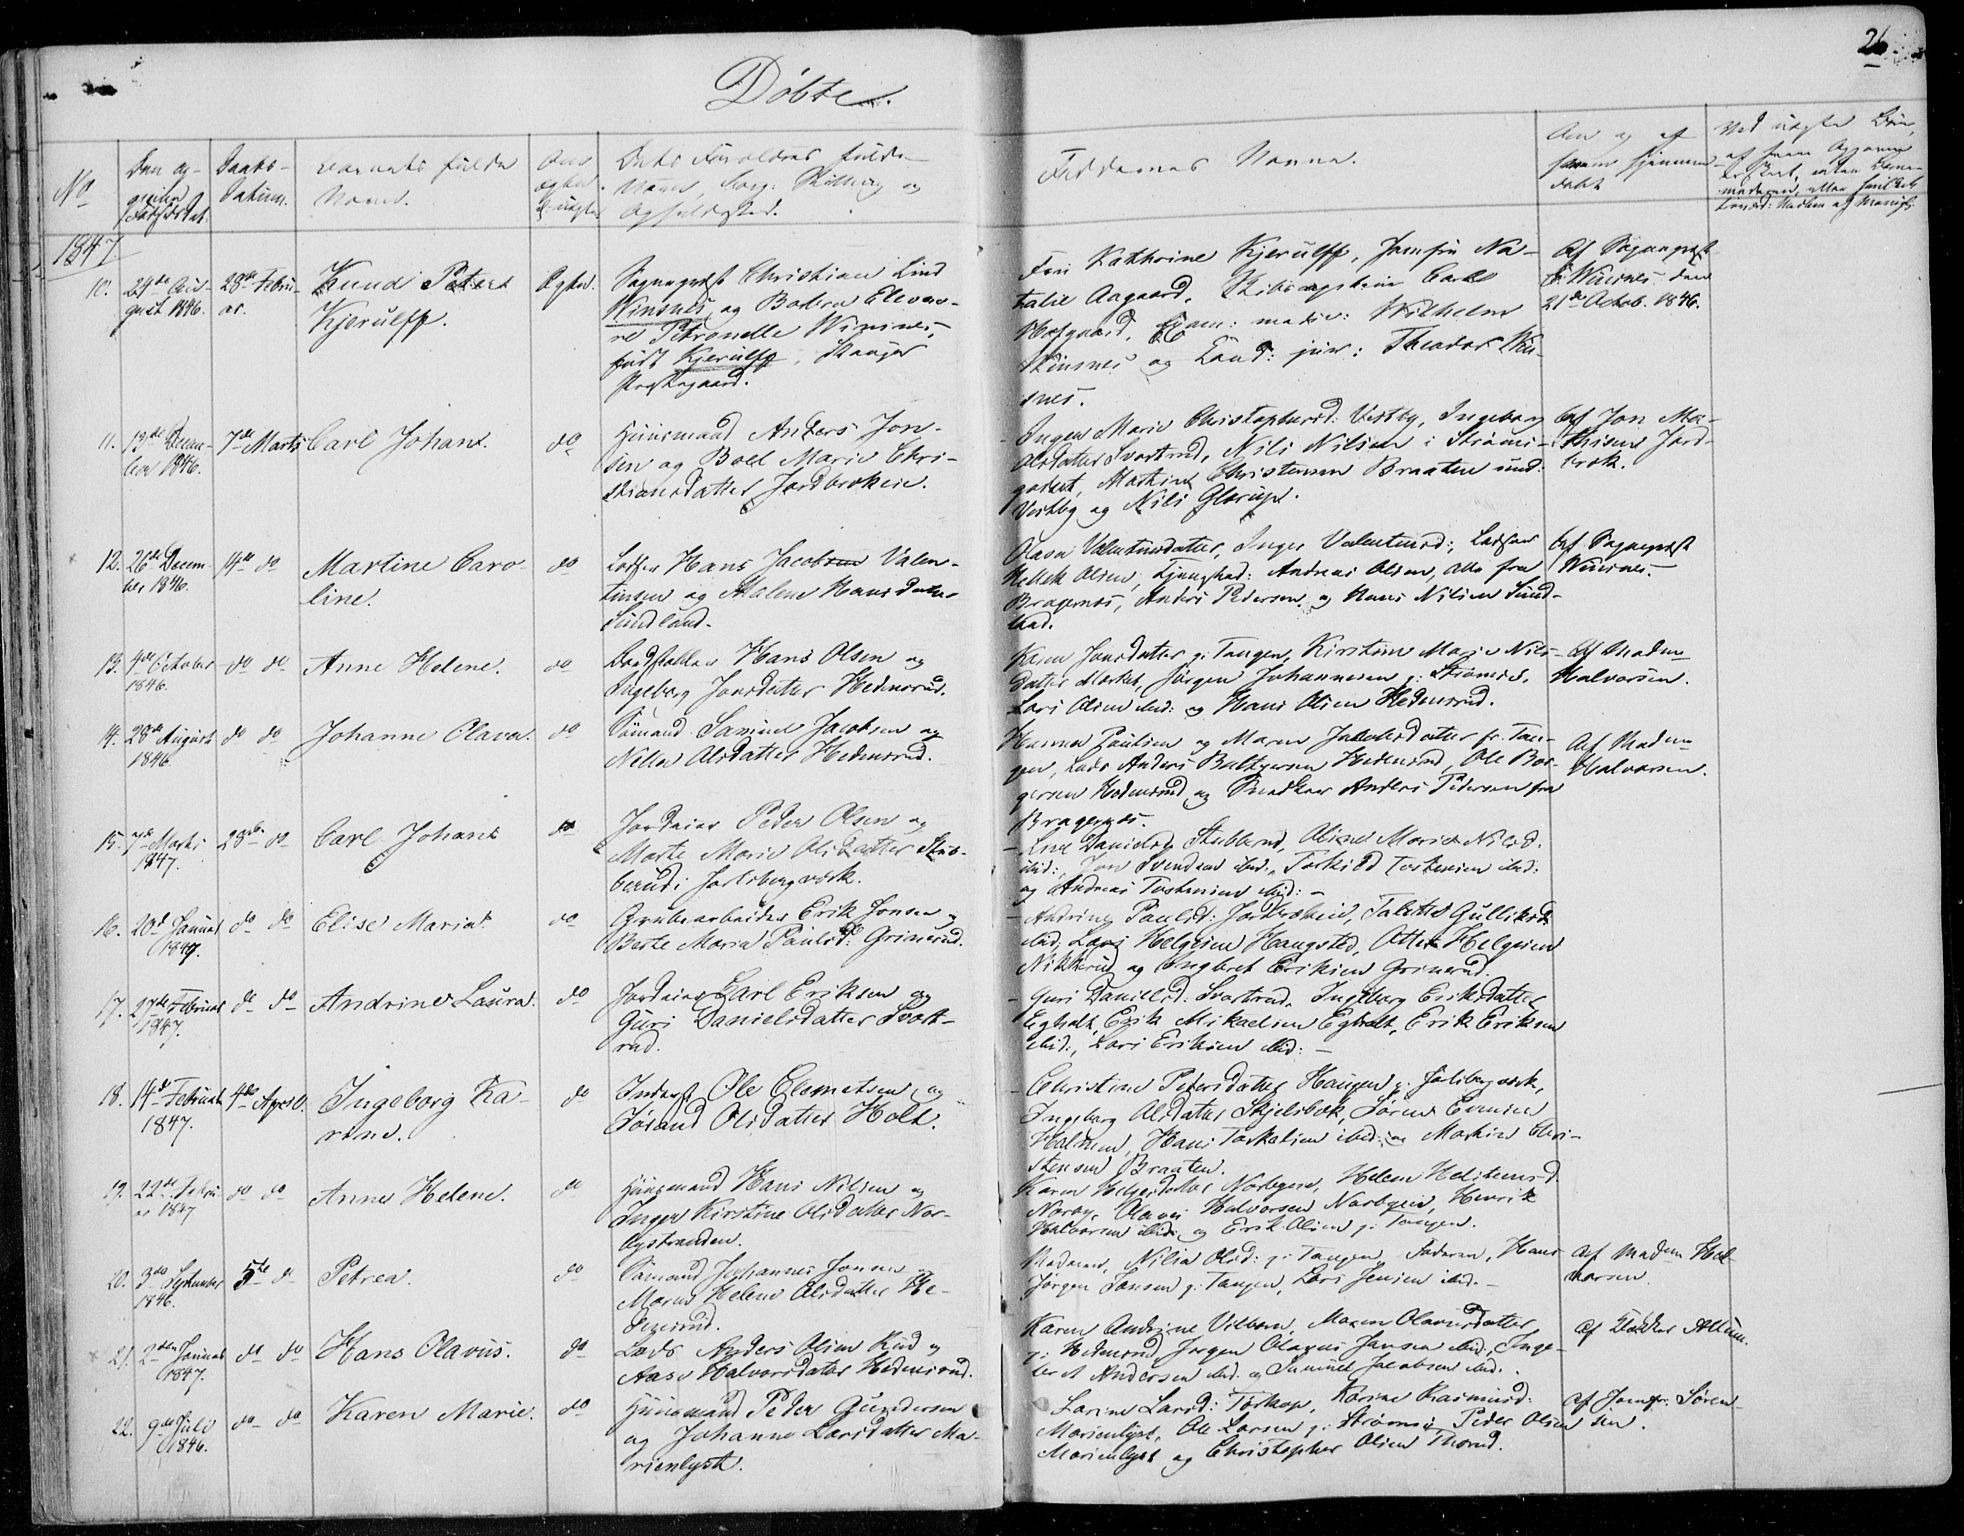 26
Døbte.
No
Den op-
givne
Fødselsdat:
Daabs-
Datum.
Barnets fulde
Navn.
Om
ægte
el: uægte
Dets Forældres fulde
Navne, Borg: Stilling og
Opholdssted.
Faddernes Navne.
Om og af
hvem hjemme-
døbt
Ved uægte Børn,
1847.
10.
29de Au-
gust 1846.
28de Febru-
ar.
Knud Peter
Kjerulff.
Ægte.
Sognepræst Christian Lind
Winsnes og Barbra Eleono-
re Petronelle Winsnes,
født Kjerulff, Skouger
Præstegaard.
Frue Kathrine Kjerulff, Jomfru Na-
talie Aagaard, Skibscaptein Carl
Hofgaard, Exam: medic: Wilhelm
Winsnes og Cand: jur: Theodor Win-
snes.
Af Sognepræst
C. Winsnes den
21de Octob. 1846.
11.
13de Decem-
ber 1846.
7de Marts
Carl Johan.
do
Huusmand Anders Jon-
sen og Boel Marie Chri-
stiansdatter Jordbrækeie.
Ingen Marie Christophersd: Vestby, Ingeborg
Olsdatter Svartrud, Nils Nilsen i Strøms-
godset, Martin Christensen Braaten und:
Vestby og Nils Glerup.
Af Jon Ma-
thisen Jord-
bræk.
12.
26de Decem-
ber 1846.
14de do
Martine Caro-
line.
do
Lodsen Hans Jacobsen Valen-
tinsen og Malene Hansdatter
Sundland.
Olava Valentinsdatter, Inger Valentinsd:, Lodsen
Kittek Olsen, Andreas Olsen, alle fra
Bragernæs, Anders Pedersen og Hans Nilsen Sund-
land.
Af Sognepræst
Winsnes.
13.
4de October
1846.
do do
Anne Helene.
do
Hans Olsen og
Ingeborg Jonsdatter Hedensrud.
Karen Jonsdatter p: Tangen, Kirstine Marie Nils-
datter Mørket, Jørgen Johannesen p: Strømsø,
Lars Olsen ibid: og Hans Olsen Hedensrud.
Af Madm
Halvorsen.
14.
28de August
1846
do do
Johanne Olava.
do
Sømand Samuel Jacobsen og
Nella Olsdatter Hedensrud.
Hanna Paulsen og Maren Jacobsdatter fr: Tan-
gen, Lods Anders Baltzersen Hedensrud, Ole Bør-
gersen Hedensrud og Snedker Anders Pedersen fra
Bragernæs.
Af Madm
Halvorsen.
15.
7de Marts
1847.
28de do
Carl Johan
do
Jordeier Peder Olsen og
Marte Marie Olsdatter Stub-
berud i Jarlsbergværk.
Lene Danielsd: Stubberud, Oline Marie Nilsd.
ibid:, Jon Svendsen ibid:, Torkild Torstensen ibid:
og Andreas Torstensen ibid: -
16.
20d Januar
1847.
do do
Elise Maria.
do
Grubearbeider Erik Jonsen og
Berte Maria Paulsd: Grinerud.
Andrine Paulsd: Jordbrækeie, Talette Gulliksd:
ibid, Lars Helgesen Haugsted, Otter Helgesen
Nikkerud og Engebret Eriksen Grinerud.
17.
27de Februar
1847.
do do
Andrine Laura.
do
Jordeier Carl Eriksen og
Guri Danielsdatter Svart-
rud.
Guri Danielsd: Svartrud, Ingeborg Eriksdatter
Egholt, Erik Mikaelsen Egholt, Erik Eriksen
ibid:, Lars Eriksen ibid: -
18.
14de Februar
1847.
4de April.
Ingeborg Ka-
rine.
do
Inderst Ole Clemetsen og
Tørand Olsdatter Holt.
Christine Pedersdatter Haugen p: Jarlsbergværk,
Ingeborg Olsdatter Skjelsbæk, Søren Evensen
Halmen, Hans Torkelsen ibid: og Martin Chri-
stensen Braaten.
19.
22de Febru-
ar 1847
do do
Anne Helene.
do
Huusmand Hans Nilsen og
Inger Kirstine Olsdatter Nor-
bystranden.
Karen Helgesdatter Norbyeie, Helene
Norby, Olaves Halvorsen Norbyeie, Henrik
Halvorsen ibid: og Erik Olsen p: Tangen.
20.
3de September
1846.
5te do
Petrea.
do
Sømand Johannes Jonsen og
Maren Helene Olsdatter He-
densrud.
Moderen, Nilia Olsd: p: Tangen, Faderen, Hans
Jørgen Jansen p: Tangen, Lars Jensen ibid. -
Af Madm Hal-
vorsen.
21.
2den Januar
1847.
do do
Hans Olavus.
do
Lods Anders Olsen Rud og
Aase Halvorsdatter Hedensrud.
Karen Andrine Maren Olavesdatter
p: Hedensrud, Jørgen Olaves Jansen ibid:, Inge-
bret Andersen ibid. og Samuel Jacobsen ibid. -
Af
22.
9de Juli
1846.
do do
Karen Marie.
do
Huusmand Peder Gundersen
og Johanne Larsdatter Ma-
rienlyst.
Karine Larsd: Torkop, Karine Rasmusd:
Marienlyst, Ole Larsen p: Strømsø, Peder Olsen
Marienlyst og Christopher Olsen Thorud.
Af Jomfr: Søren-
sen.